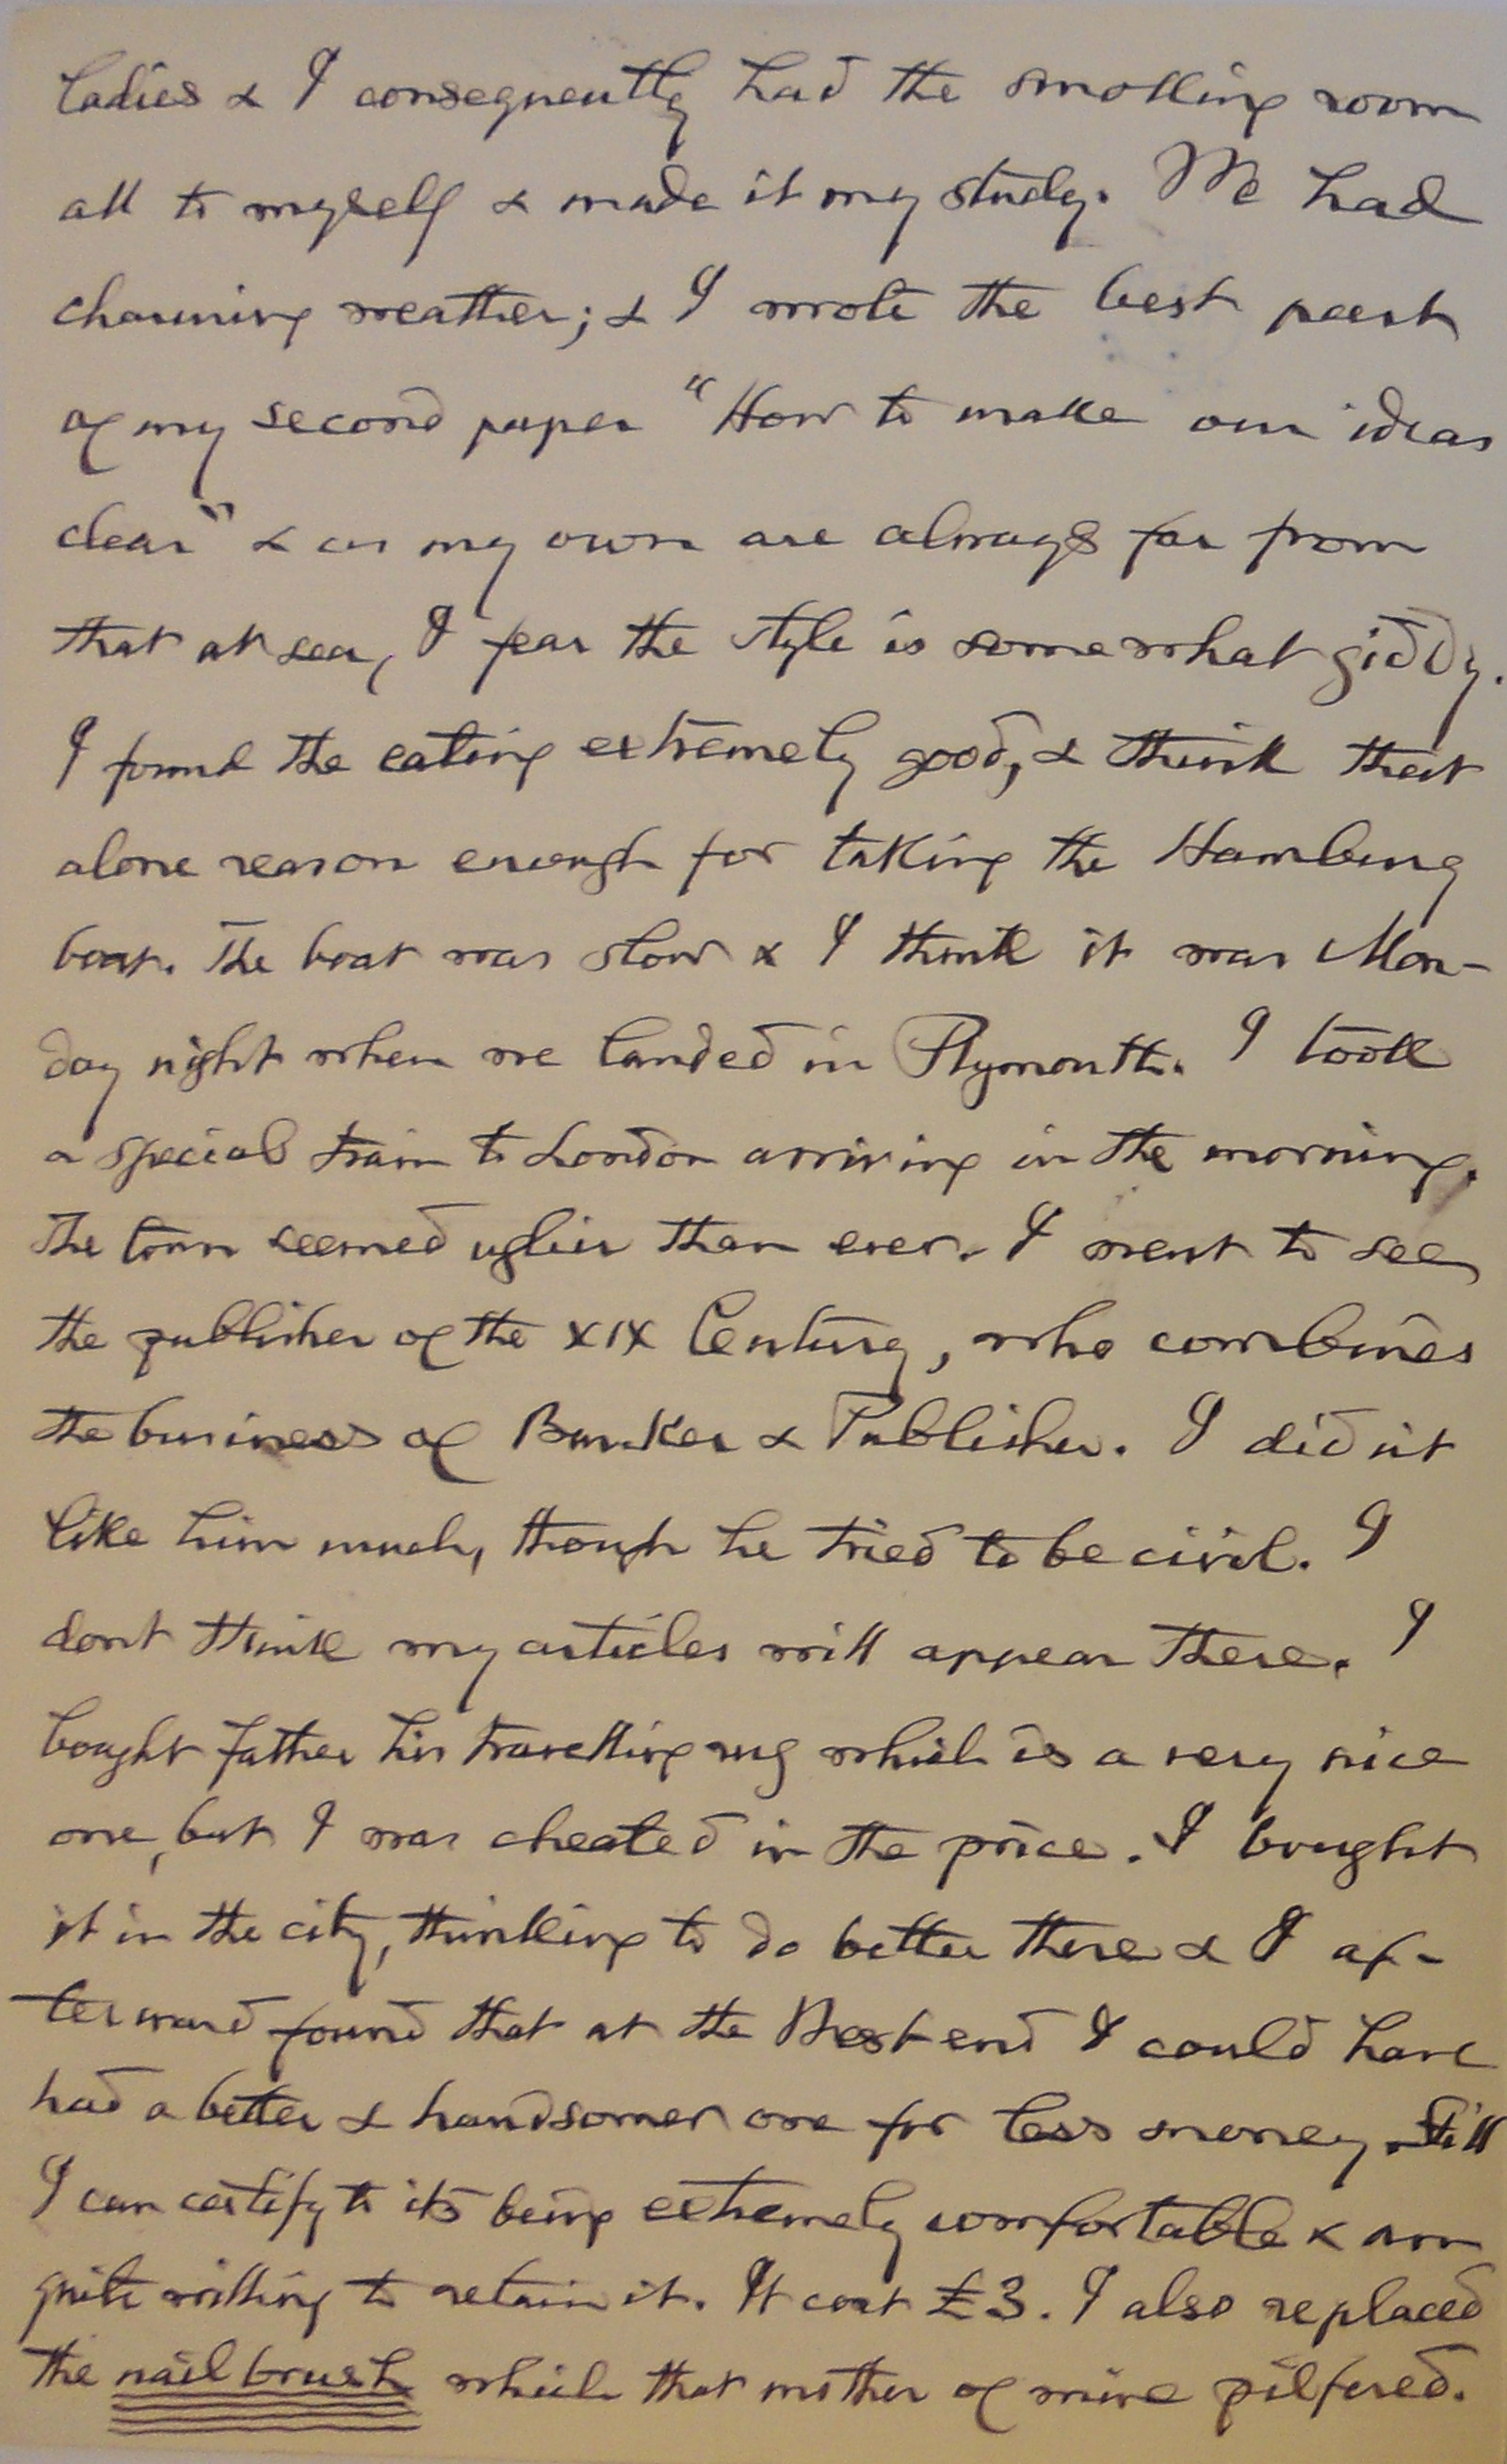 ladies & I consequently had the smoking room
all to myself & made it my study. We had
charming weather; & I wrote the best part
of my second paper "How to make our ideas
clear" & as my own are always far from
that at sea, I fear the style is somewhat giddy.
I found the eating extremely good, & think that
alone reason enough for taking the Hamburg
boat. The boat was slow & I think it was Mon-
day night when we landed in Plymouth. I took
a special train to London arriving in the morning.
The town seemed uglier than ever. I went to see
the publisher of the XIX Century, who combines
the business of Banker & Publisher. I did n't
like him much, though he tried to be civil. I
dont think my articles will appear there. I
bought father his travelling rug which is a very nice
one, but I was cheated in the price. I bought
it in the city, thinking to do better there & I af-
terward found that at the West end I could have
had a better & handsomer one for less money. Still
I can certify to its being extremely comfortable & am
quite willing to retain it. It cost £3. I also replaced
the nail brush which that mother of mine pilfered.